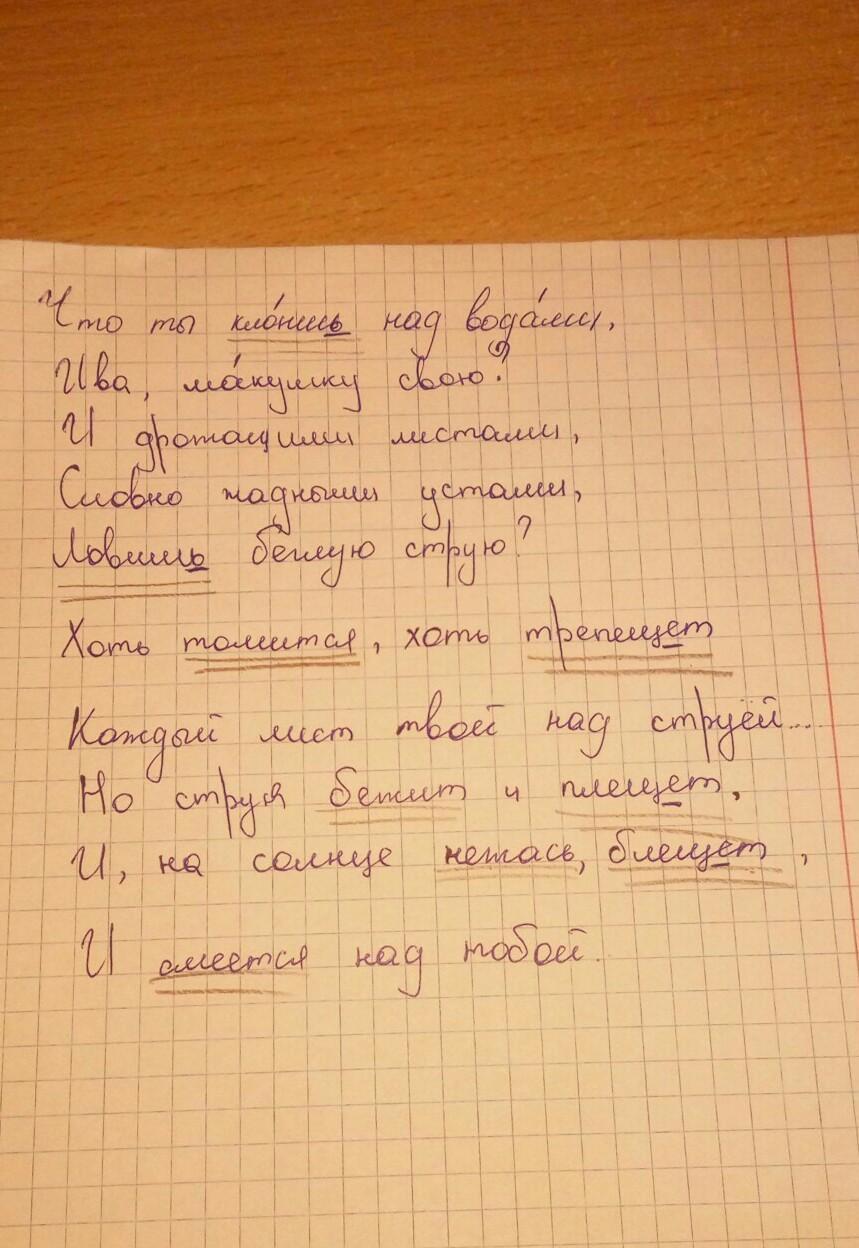 Что ты кло́нишь над вода́ми,
Ива, ма́кушку свою?
И дрожащими листами,
Словно жадными устами,
Ловишь беглую струю?
Хоть томится, хоть трепещет
Каждый лист твой над струёй...
Но струя бежит и плещет,
И, на солнце нежась, блещет,
И смеется над тобой.